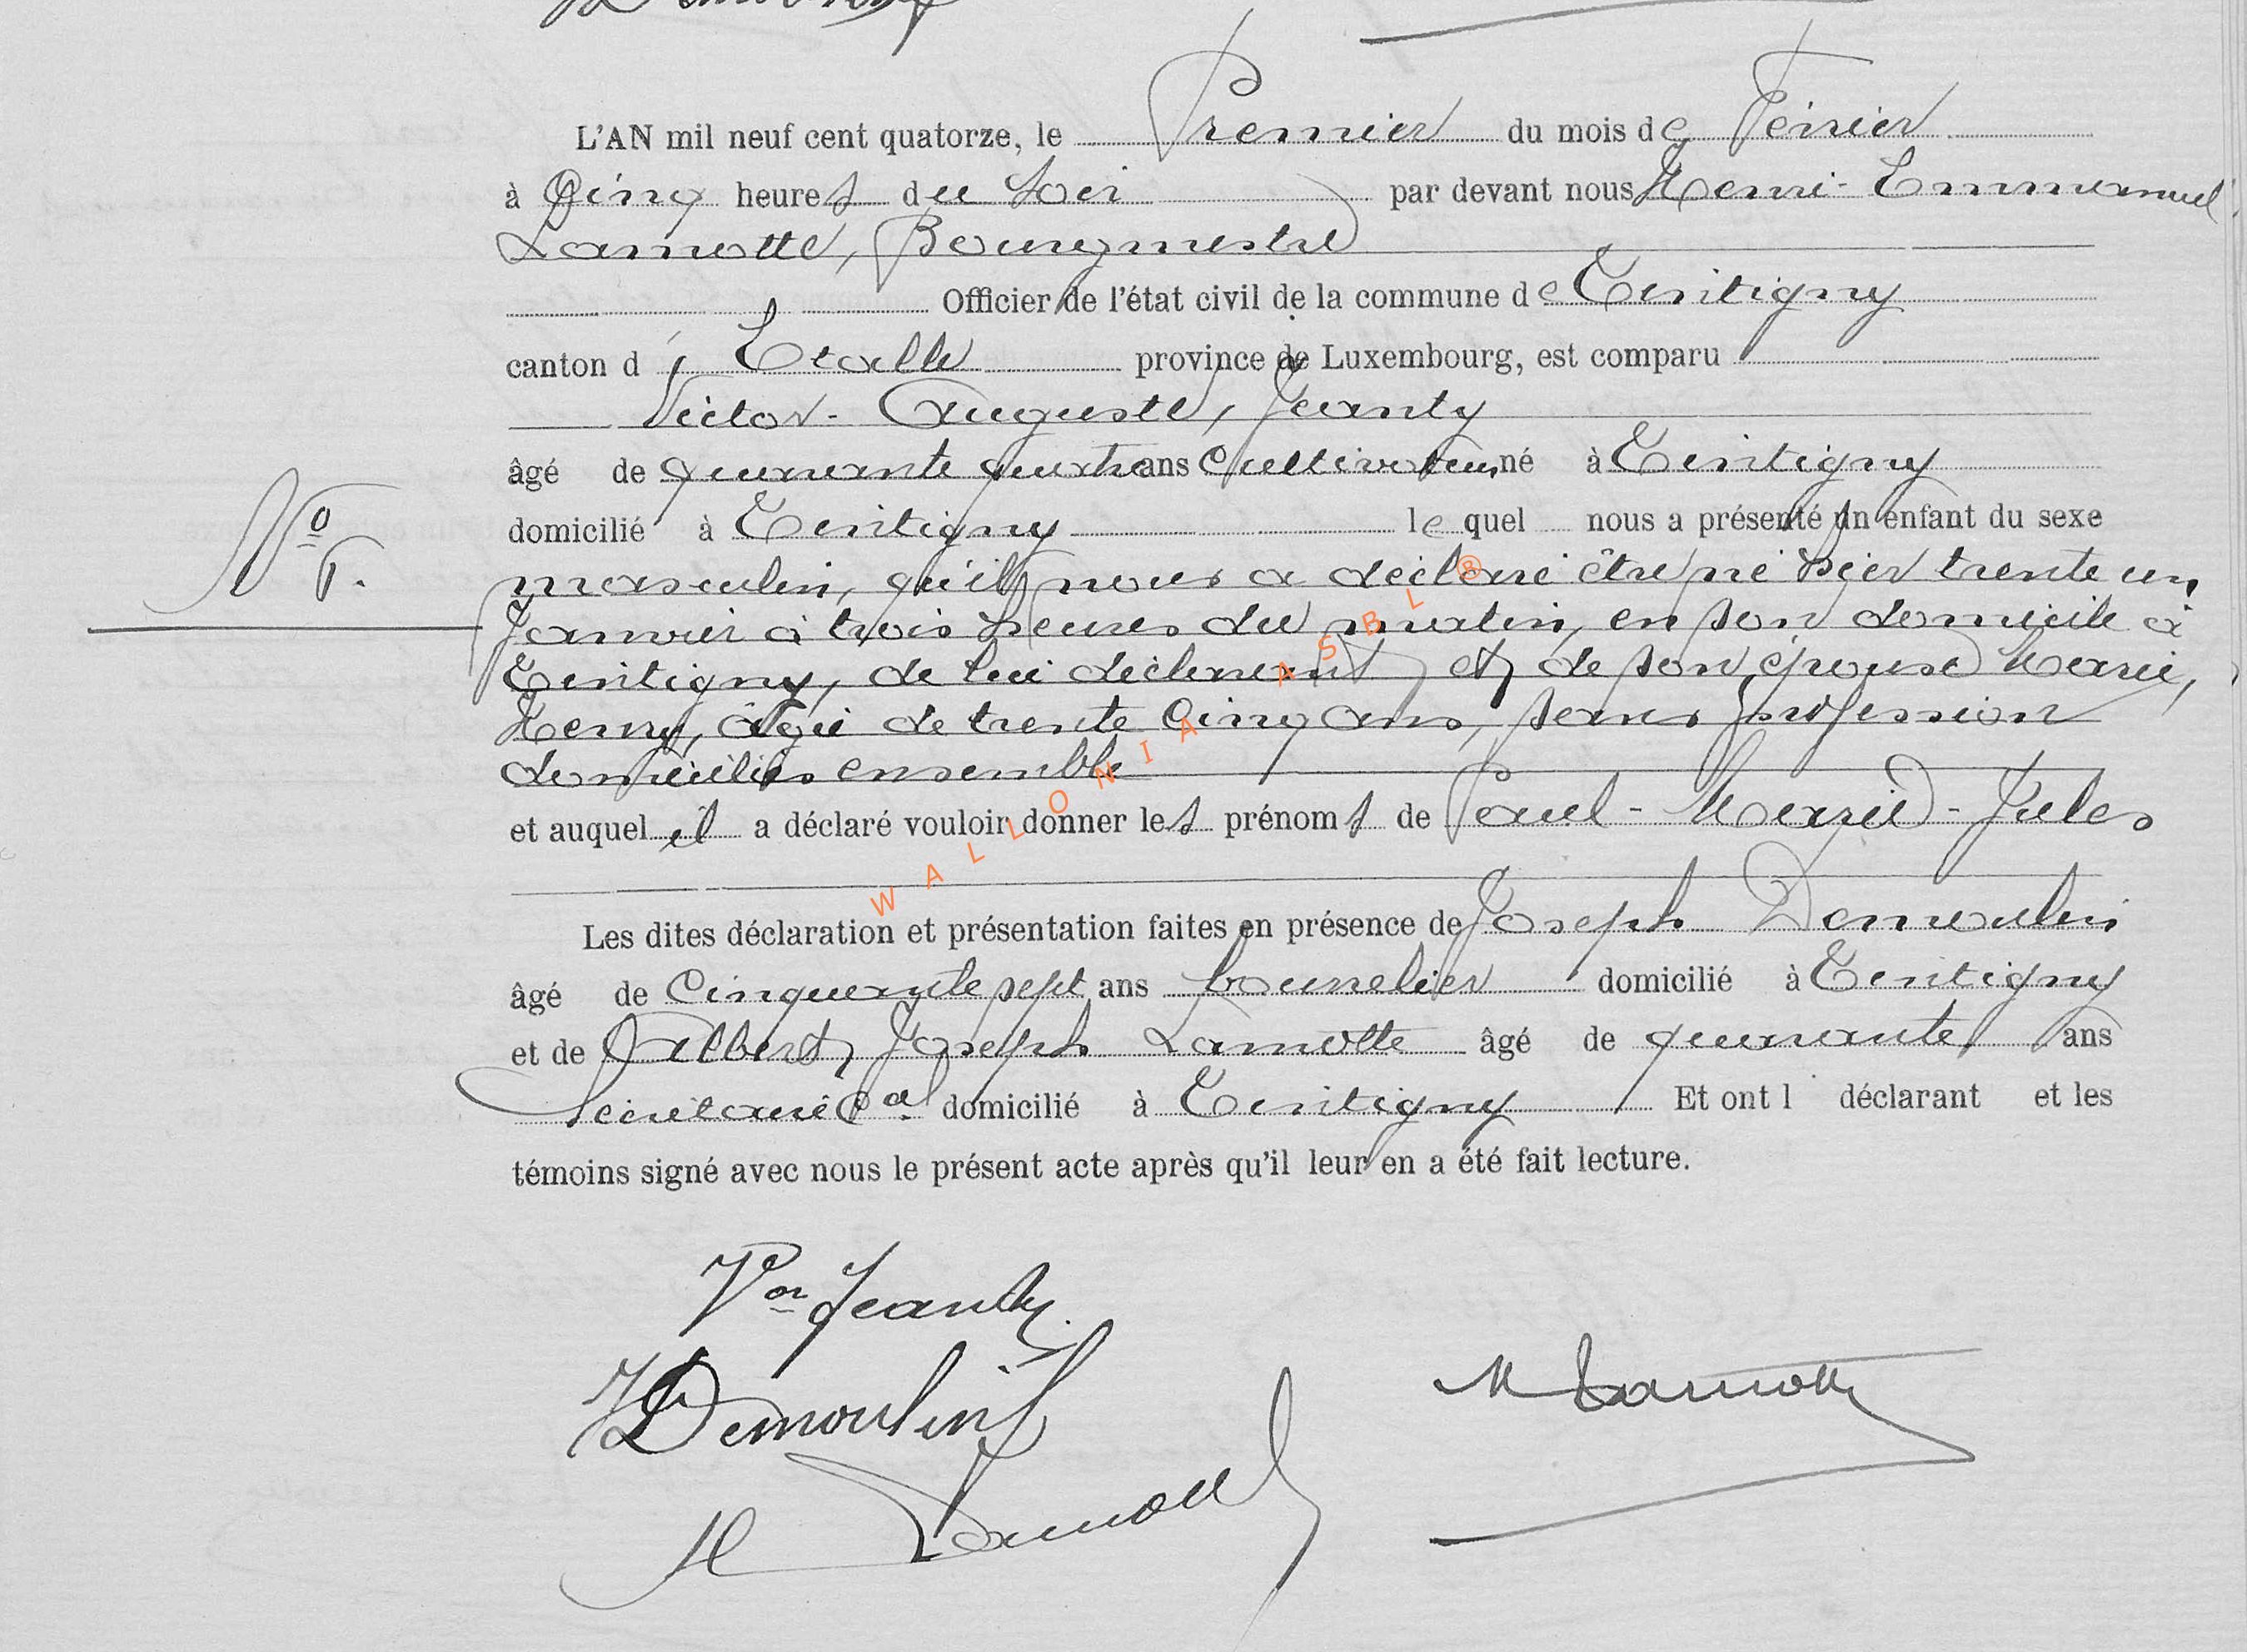 L'AN mil neuf cent quatorze, le Premier du mois de Février
à Cinq heures du soir par devant nous Henri-Emmanuel
Lamotte, Bourgmestre
Officier de l'état civil de la commune de Tintigny
canton d'Etalle province de Luxembourg, est comparu
Victor-Auguste, Jeanty
âgé de quarante quatre ans Cultivateur, né à Tintigny
domicilié à Tintigny le quel nous a présenté un enfant du sexe
N° 6.
masculin, qu'il nous a déclaré être né hier trente un
Janvier à trois heures du matin, en son domicile à
Tintigny, de lui déclarant et de son épouse Marie,
Henry, âgée de trente cinq ans, sans profession
domiciliés ensemble
et auquel il a déclaré vouloir donner les prénoms de Paul-Marie-Jules
Les dites déclaration et présentation faites en présence de Joseph Demoulin
âgé de Cinquante sept ans bourrelier domicilié à Tintigny
et de Albert Joseph Lamotte âgé de quarante ans
Secrétaire Cal domicilié à Tintigny Et ont l déclarant et les
témoins signé avec nous le présent acte après qu'il leur en a été fait lecture.
Vor Jeanty
Demoulin J
Lamotte
Lamotte
WALLONIA ASBL ®